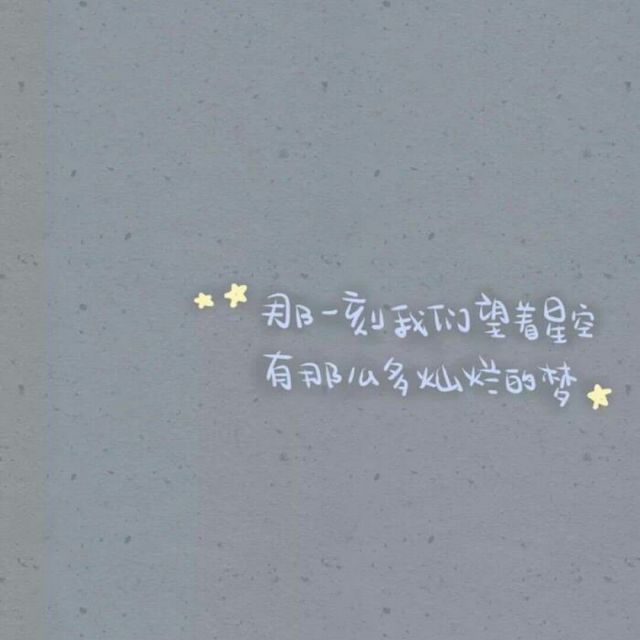 那一刻我们望着星空
有那么多灿烂的梦